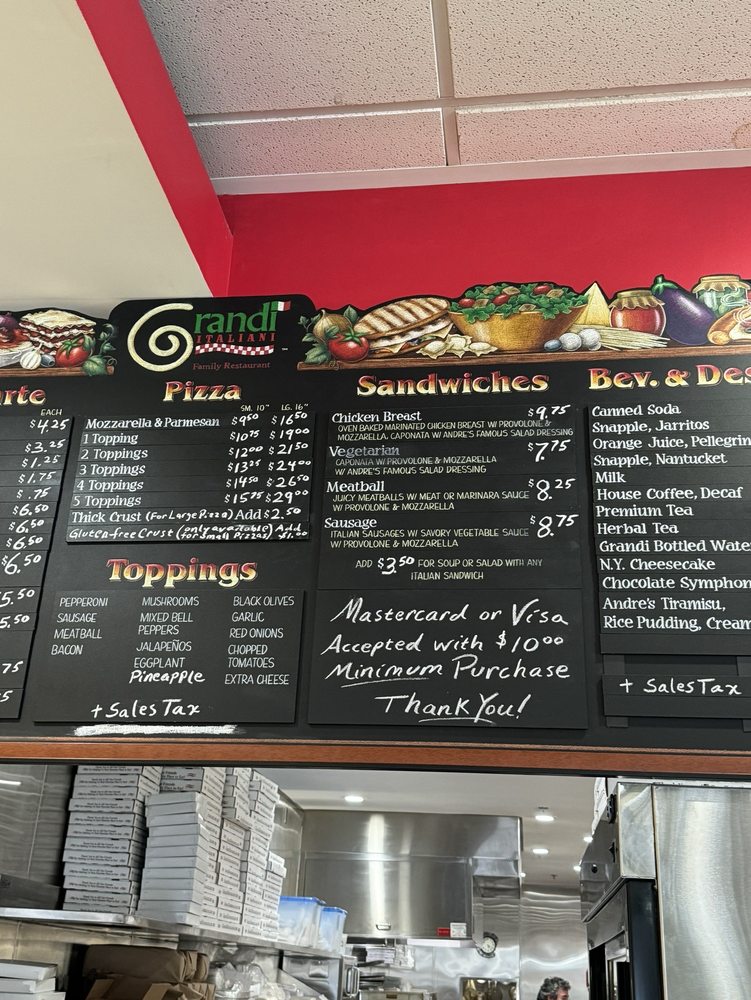 arte
EACH
$4.25
$3.25
$1.25
$1.75
$.75
$6.50
$6.50
$6.50
$6.50
5.50
5.50
75
5
Grandi
ITALIANI
Family Restaurant
Pizza
SM. 10" LG. 16"
Mozzarella & Parmesan $9.50 $16.50
1 Topping $10.75 $19.00
2 Toppings $12.00 $21.50
3 Toppings $13.25 $24.00
4 Toppings $14.50 $26.50
5 Toppings $15.75 $29.00
Thick Crust (For Large Pizza) Add $2.50
Gluten-free Crust (only available for small Pizzas) Add $1.00
Toppings
PEPPERONI
SAUSAGE
MEATBALL
BACON
MUSHROOMS
MIXED BELL
PEPPERS
JALAPEÑOS
EGGPLANT
Pineapple
BLACK OLIVES
GARLIC
RED ONIONS
CHOPPED
TOMATOES
EXTRA CHEESE
+ Sales Tax
Sandwiches
Chicken Breast $9.75
OVEN BAKED MARINATED CHICKEN BREAST W/ PROVOLONE &
MOZZARELLA, CAPONATA W/ ANDRE'S FAMOUS SALAD DRESSING
Vegetarian $7.75
CAPONATA W/ PROVOLONE & MOZZARELLA
W/ ANDRE'S FAMOUS SALAD DRESSING
Meatball $8.25
JUICY MEATBALLS W/ MEAT OR MARINARA SAUCE
W/ PROVOLONE & MOZZARELLA
Sausage $8.75
ITALIAN SAUSAGES W/ SAVORY VEGETABLE SAUCE
W/ PROVOLONE & MOZZARELLA
ADD $3.50 FOR SOUP OR SALAD WITH ANY
ITALIAN SANDWICH
Mastercard or Visa
Accepted with $10.00
Minimum Purchase
Thank You!
Bev. & Des
Canned Soda
Snapple, Jarritos
Orange Juice, Pellegrin
Snapple, Nantucket
Milk
House Coffee, Decaf
Premium Tea
Herbal Tea
Grandi Bottled Water
N.Y. Cheesecake
Chocolate Symphon
Andre's Tiramisu,
Rice Pudding, Cream
+ Sales Tax